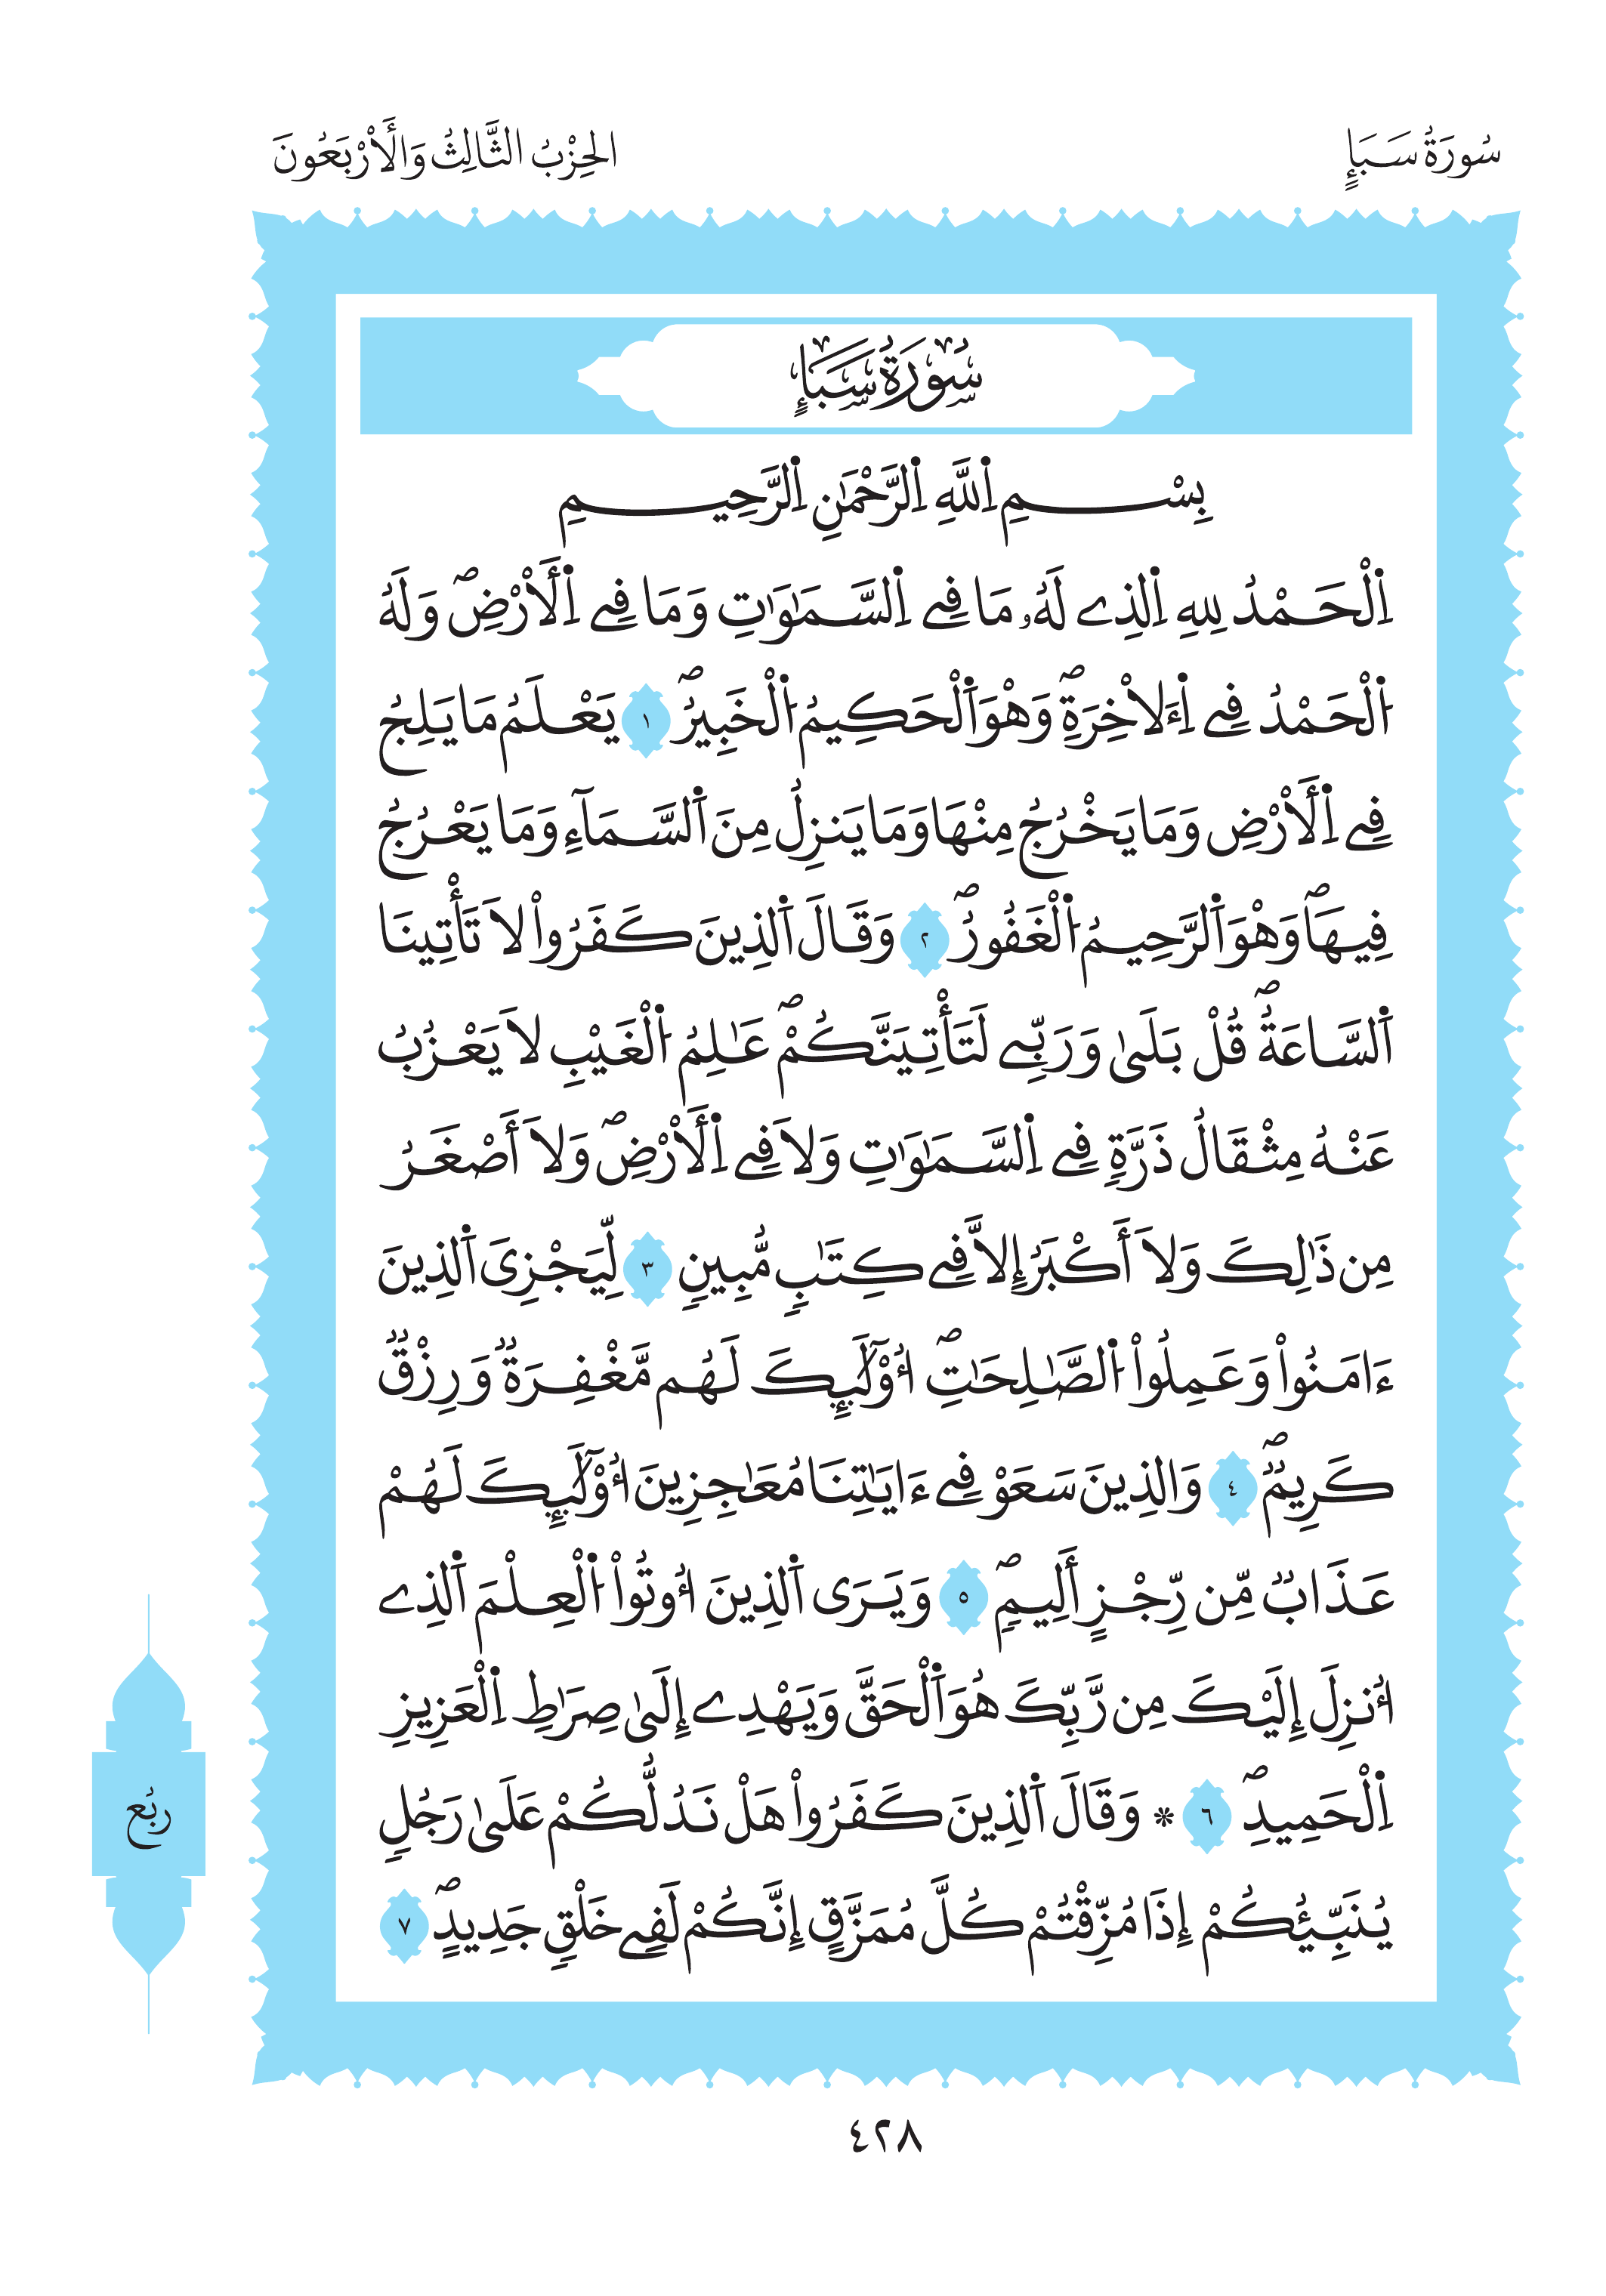 سُورَةُ سَبَإٍ
الحِزْبُ الثَّالِثُ وَالَأرْبَعُونَ
سُورَةُ سَبَإٍ
بِسْمِ اِ۬للَّهِ اِ۬لرَّحْمَٰنِ اِ۬لرَّحِيمِ
اِ۬لْحَمْدُ لِلهِ اِ۬لذِے لَهُۥ مَا فِے اِ۬لسَّمَٰوَٰتِ وَمَا فِے اِ۬لَارْضِۖ وَلَهُ
اُ۬لْحَمْدُ فِے اِ۬ءَلاخِرَةِۖ وَهْوَ اَ۬لْحَكِيمُ اُ۬لْخَبِيرُۖ ١ يَعْلَمُ مَا يَلِجُ
فِے اِ۬لَارْضِ وَمَا يَخْرُجُ مِنْهَا وَمَا يَنزِلُ مِنَ اَ۬لسَّمَآءِ وَمَا يَعْرُجُ
فِيهَاۖ وَهْوَ اَ۬لرَّحِيمُ اُ۬لْغَفُورُۖ ٢ وَقَالَ اَ۬لذِينَ كَفَرُواْ لَا تَأْتِينَا
اَ۬لسَّاعَةُۖ قُلْ بَلَىٰ وَرَبِّے لَتَأْتِيَنَّكُمْۖ عَٰلِمُ اُ۬لْغَيْبِ لَا يَعْزُبُ
عَنْهُ مِثْقَالُ ذَرَّةٖ فِے اِ۬لسَّمَٰوَٰتِ وَلَا فِے اِ۬لَارْضِۖ وَلَا أَصْغَرُ
مِن ذَٰلِكَ وَلَا أَكْبَرُ إِلَّا فِے كِتَٰبٖ مُّبِينٖ ٣ لِّيَجْزِيَ اَ۬لذِينَ
ءَامَنُواْ وَعَمِلُواْ اُ۬لصَّٰلِحَٰتِۖ أُوْلَٰٓئِكَ لَهُم مَّغْفِرَةٞ وَرِزْقٞ
كَرِيمٞۖ ٤ وَالذِينَ سَعَوْ فِے ءَايَٰتِنَا مُعَٰجِزِينَ أُوْلَٰٓئِكَ لَهُمْ
عَذَابٞ مِّن رِّجْزٍ أَلِيمٖۖ ٥ وَيَرَى اَ۬لذِينَ أُوتُواْ اُ۬لْعِلْمَ اَ۬لذِے
أُنزِلَ إِلَيْكَ مِن رَّبِّكَ هُوَ اَ۬لْحَقَّ وَيَهْدِے إِلَىٰ صِرَٰطِ اِ۬لْعَزِيزِ
اِ۬لْحَمِيدِۖ ٦ * وَقَالَ اَ۬لذِينَ كَفَرُواْ هَلْ نَدُلُّكُمْ عَلَىٰ رَجُلٖ
يُنَبِّئُكُمْ إِذَا مُزِّقْتُمْ كُلَّ مُمَزَّقٍ إِنَّكُمْ لَفِے خَلْقٖ جَدِيدٍۖ ٧
ربُع
٤٢٨